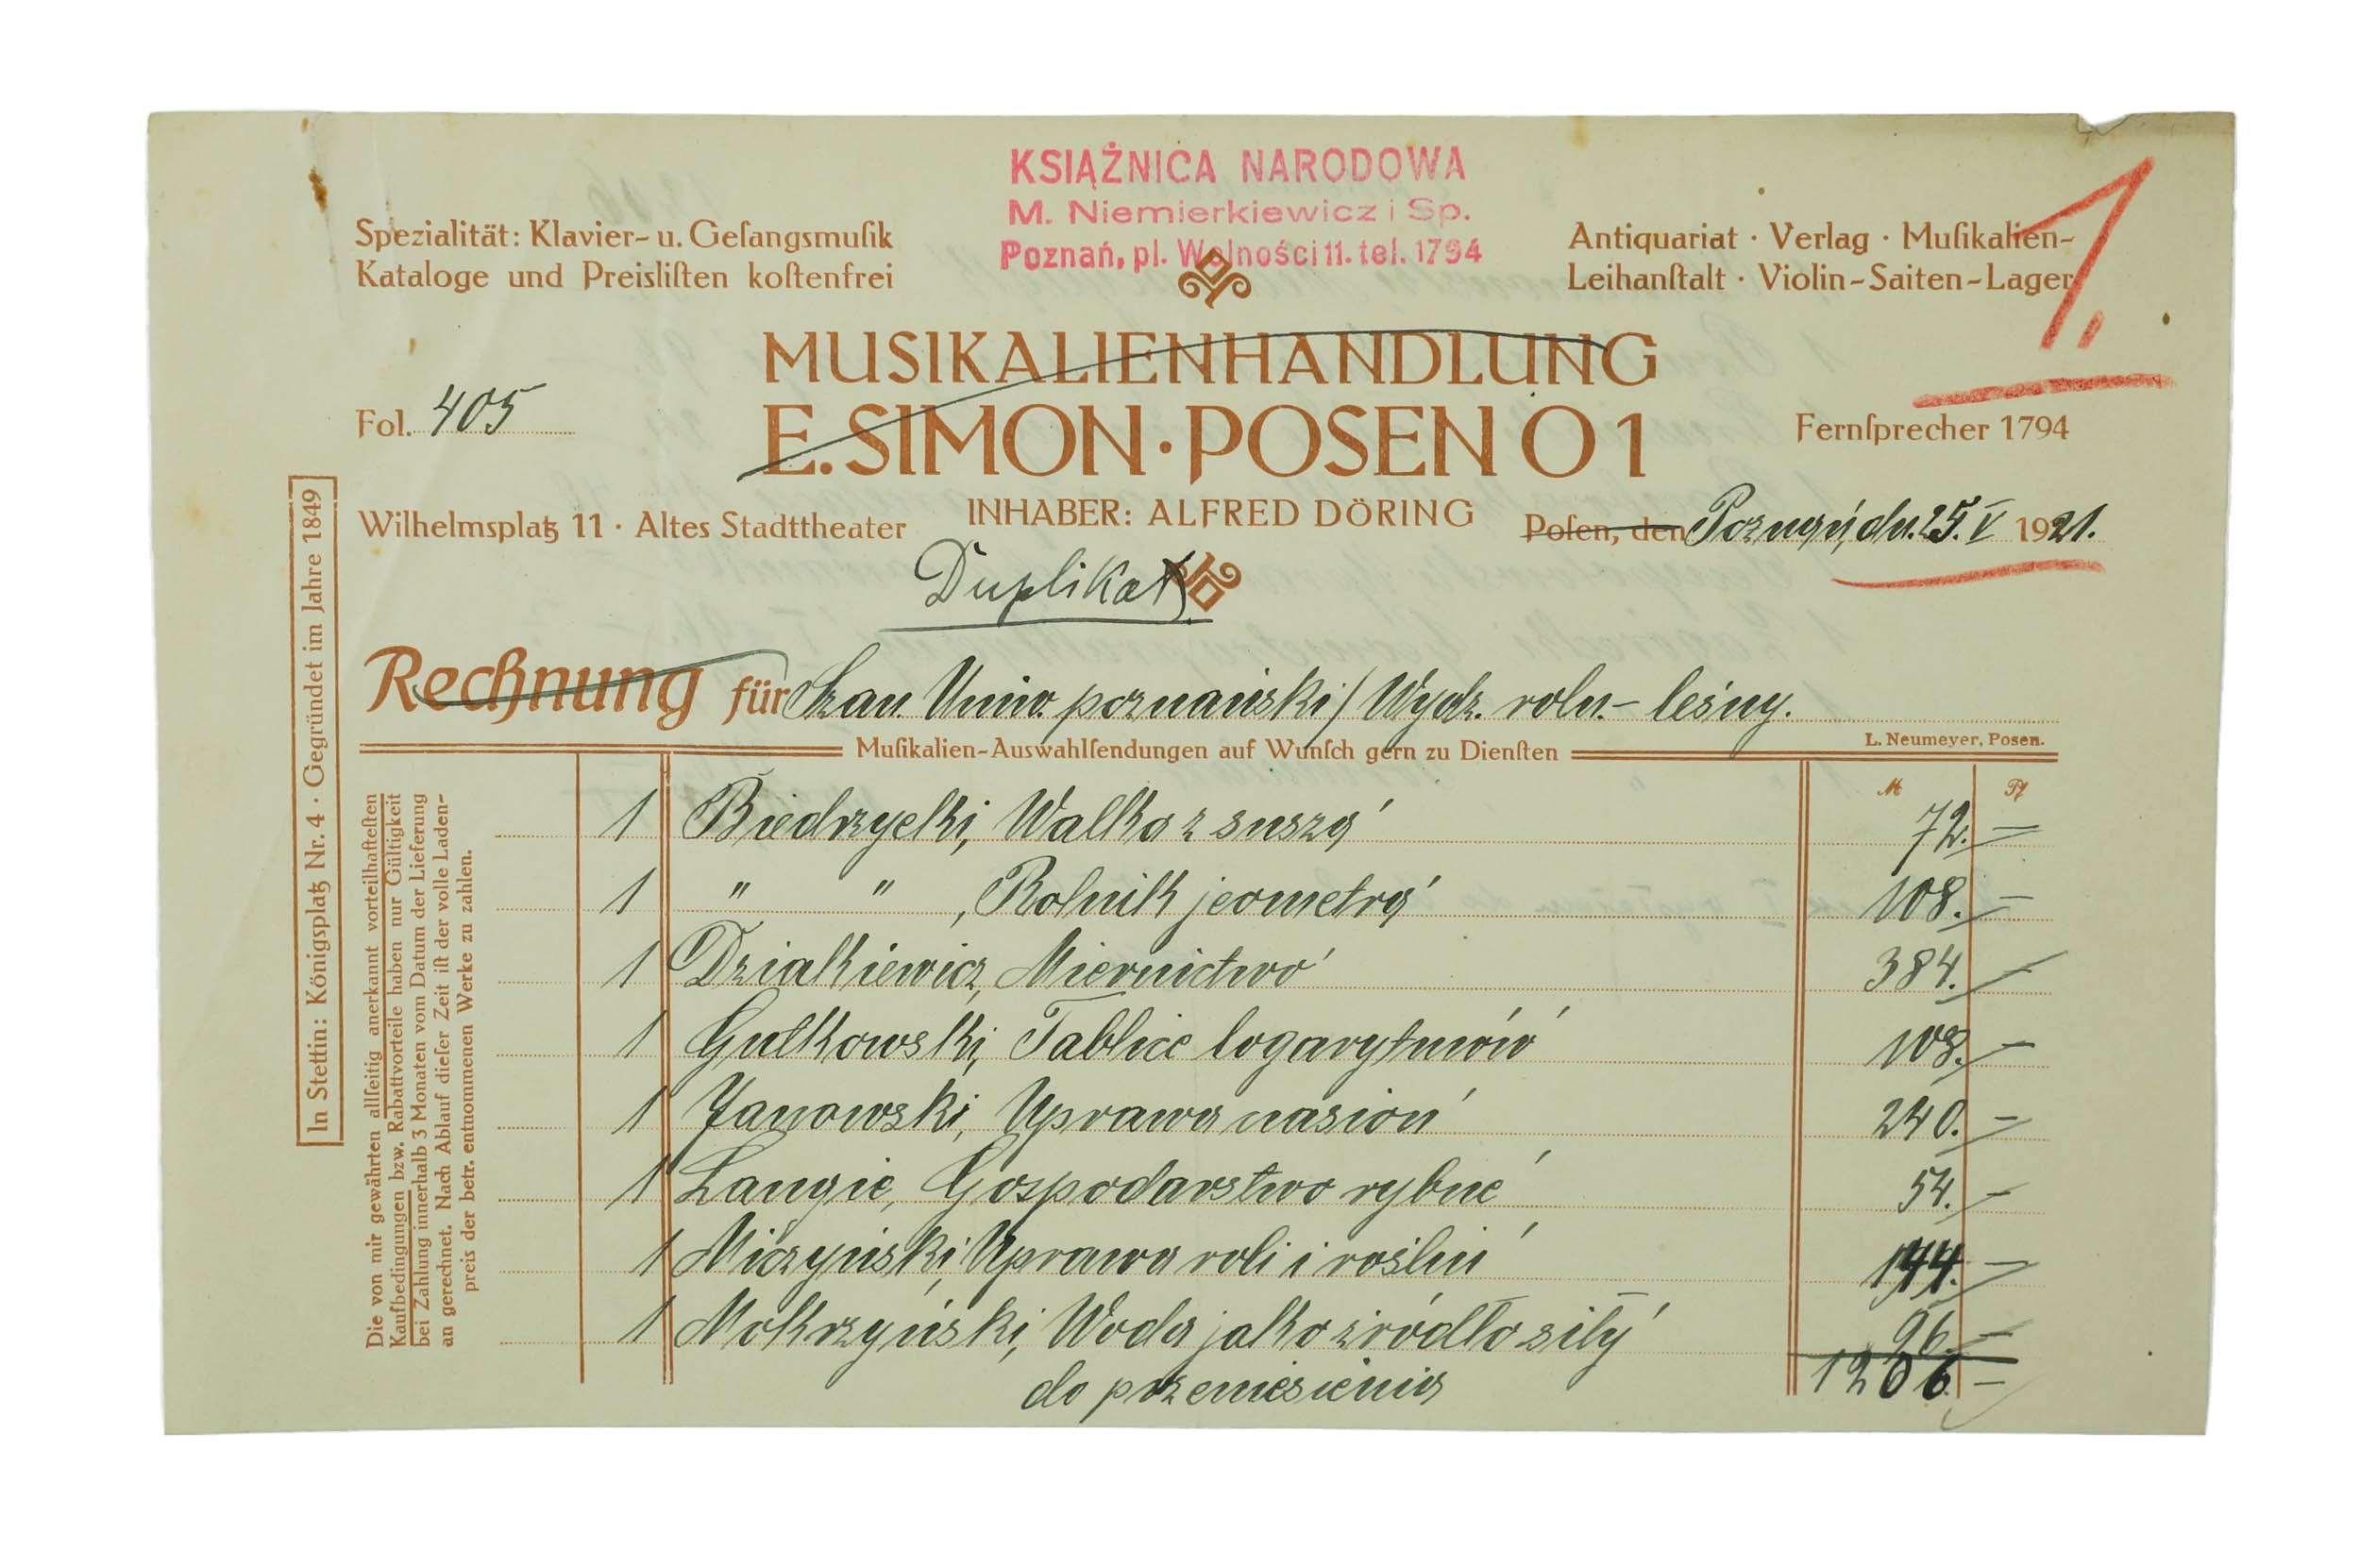 KSIĄŻNICA NARODOWA
M. Niemierkiewicz i Sp.
Poznań, pl. Wolności 11. tel. 1794
Spezialität: Klavier- u. Geſangsmuſik
Kataloge und Preisliſten koſtenfrei
Antiquariat · Verlag · Muſikalien-
Leihanſtalt · Violin-Saiten-Lager
1.
MUSIKALIENHANDLUNG
E. SIMON · POSEN O 1
Fol. 405
Fernſprecher 1794
Wilhelmsplatz 11 · Altes Stadttheater
INHABER: ALFRED DÖRING
Poſen, den Poznań, dn. 25. V 1921.
Duplikat
Rechnung für Szan. Uniw. poznański / Wydz. roln.- leśny.
Muſikalien-Auswahlſendungen auf Wunſch gern zu Dienſten
L. Neumeyer, Posen.
In Stettin: Königsplatz Nr. 4 · Gegründet im Jahre 1849
Die von mir gewährten allſeitig anerkannt vorteilhafteſten
Kaufbedingungen bzw. Rabattvorteile haben nur Gültigkeit
bei Zahlung innerhalb 3 Monaten vom Datum der Lieferung
an gerechnet. Nach Ablauf dieſer Zeit iſt der volle Laden-
preis der betr. entnommenen Werke zu zahlen.
M Pf
1 Biedrzycki, Walka z suszą 72.—
1 " " , Rolnik jeometrą 108.—
1 Działkiewicz, Miernictwo 384.—
1 Gutkowski, Tablice logarytmów 108.—
1 Janowski, Uprawa nasion 240.—
1 Langie, Gospodarstwo rybne 54.—
1 Miczyński, Uprawa roli i roślin 144.—
1 Mokrzyński, Woda jako źródło siły 96.—
do przeniesienia 1206.—